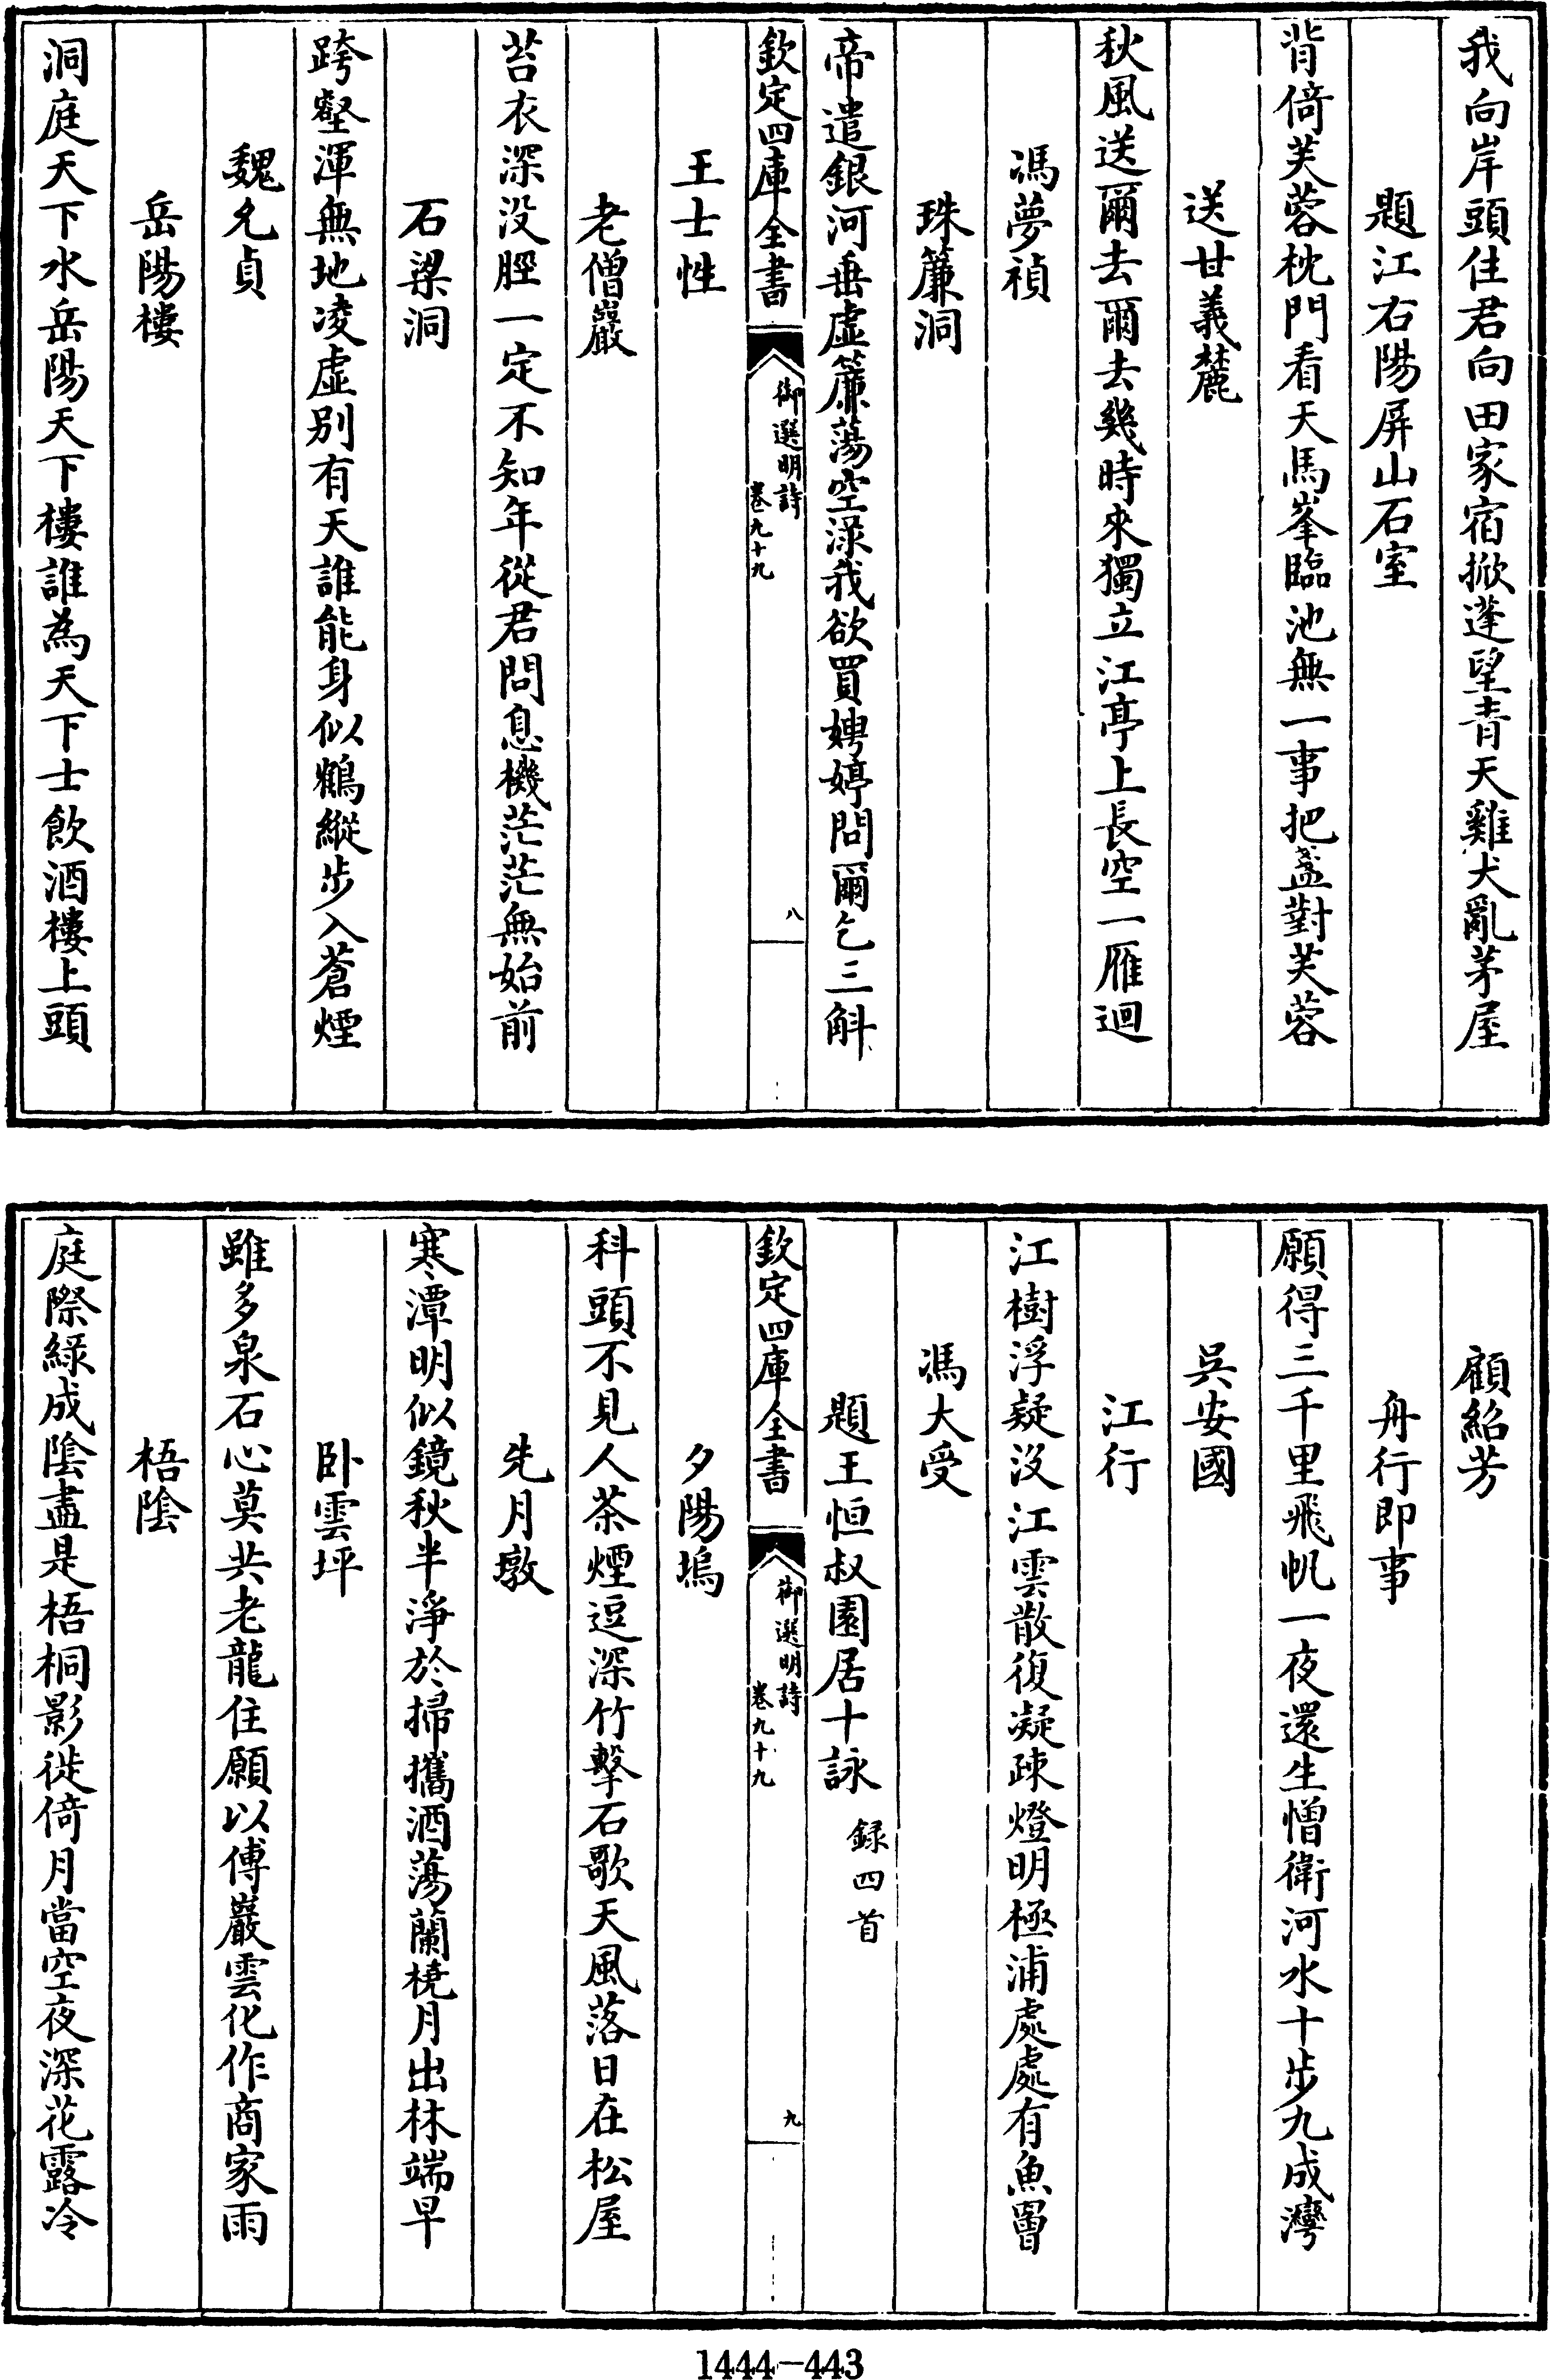 我向岸頭住君向田家宿掀蓬望青天雞犬亂茅屋
題江右陽屏山石室
背倚芙蓉枕門看天馬峯臨池無一事把盞對芙蓉
送甘義麓
秋風送爾去爾去幾時來獨立江亭上長空一雁迴
馮夢禎
珠簾洞
帝遣銀河垂虛簾蕩空渌我欲買娉婷問爾乞三斛
欽定四庫全書
御選明詩
卷九十九
八
王士性
老僧巖
苔衣深没脛一定不知年從君問息機茫茫無始前
石梁洞
跨壑渾無地凌虛别有天誰能身似鶴縱步入蒼煙
魏允貞
岳陽樓
洞庭天下水岳陽天下樓誰為天下士飲酒樓上頭
顧紹芳
舟行即事
願得三千里飛帆一夜還生憎衛河水十步九成灣
吳安國
江行
江樹浮疑沒江雲散復凝疎燈明極浦處處有魚罾
馮大受
題王恒叔園居十詠 録四首
欽定四庫全書
御選明詩
卷九十九
九
夕陽塢
科頭不見人茶煙逗深竹擊石歌天風落日在松屋
先月墩
寒潭明似鏡秋半淨於掃攜酒蕩蘭橈月出林端早
卧雲坪
雖多泉石心莫共老龍住願以傅巖雲化作商家雨
梧陰
庭際綠成陰盡是梧桐影徙倚月當空夜深花露冷
1444-443